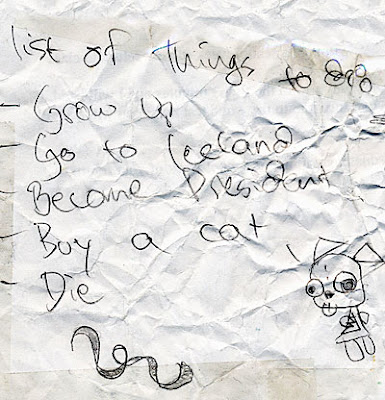 list of things to do
- Grow up
- Go to Iceland
- Become President
- Buy a cat
- Die